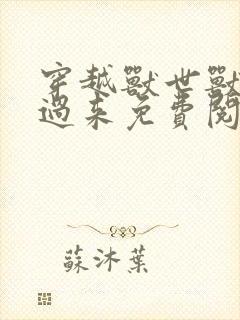 穿越獸世獸
過来免費閱
蘇沐葉